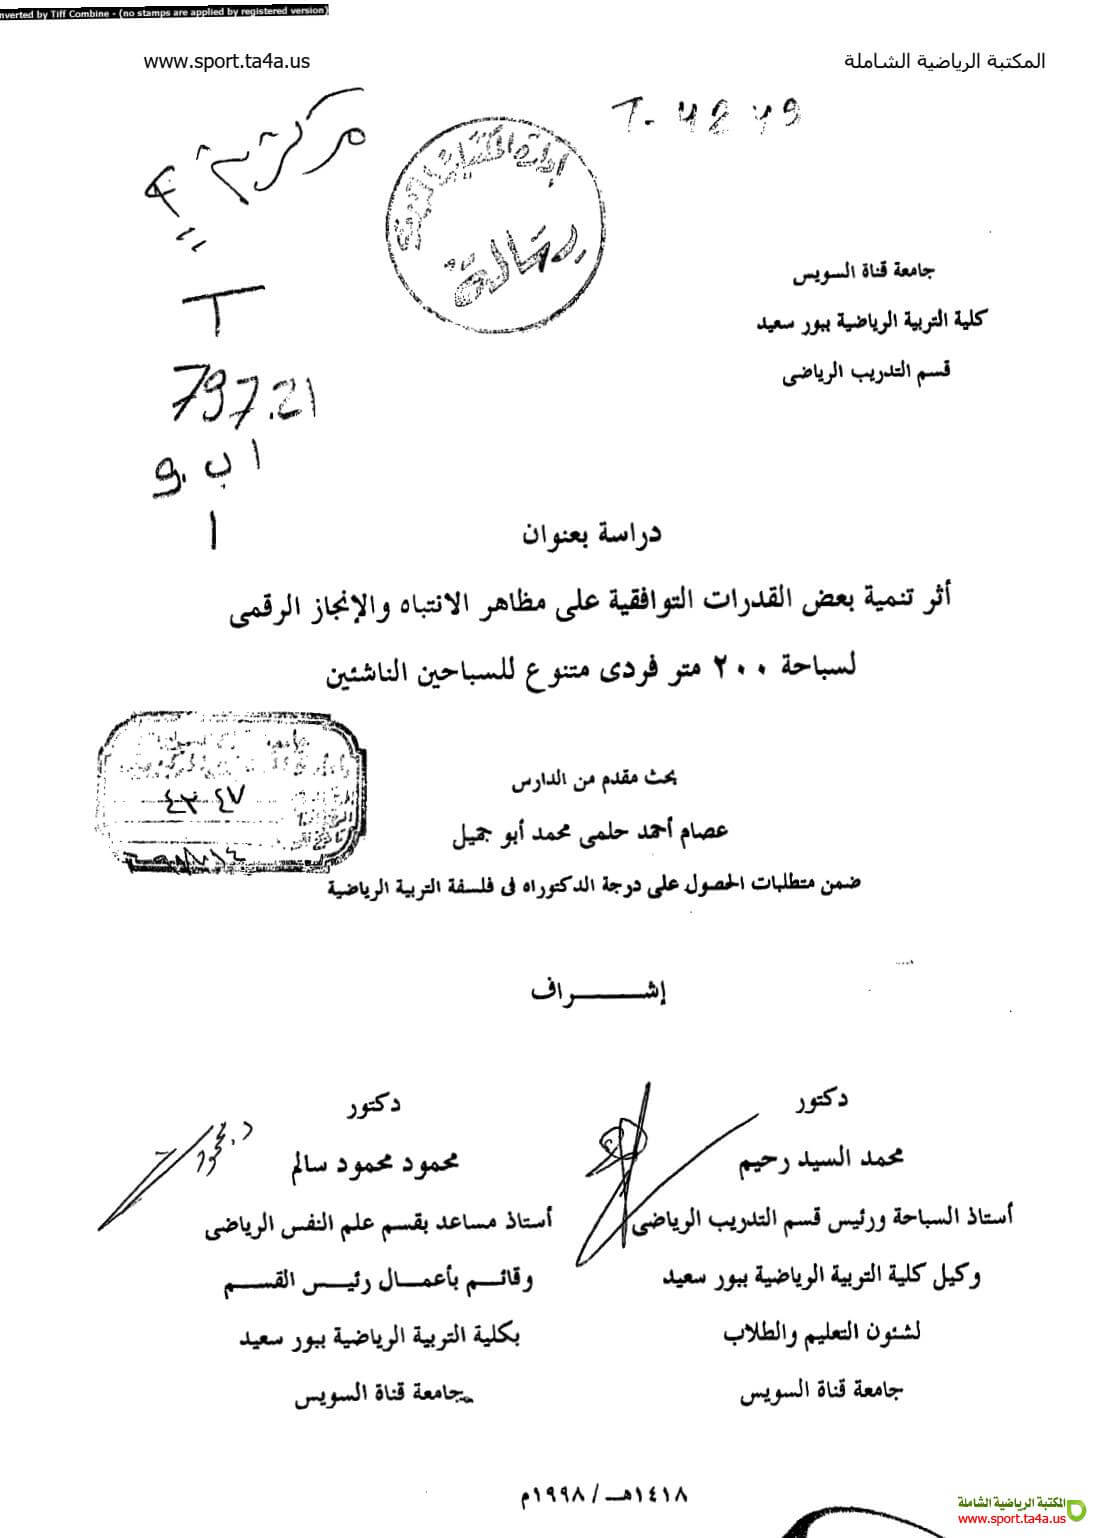 nverted by Tiff Combine - (no stamps are applied by registered version)
www.sport.ta4a.us
المكتبة الرياضية الشاملة
T. 4279
إدارة المكتبات
رسالة
T
797.21
ا ب. و
ا
جامعة قناة السويس
كلية التربية الرياضية ببور سعيد
قسم التدريب الرياضى
دراسة بعنوان
أثر تنمية بعض القدرات التوافقية على مظاهر الانتباه والإنجاز الرقمى
لسباحة ٢٠٠ متر فردى متنوع للسباحين الناشئين
بحث مقدم من الدارس
عصام أحمد حلمى محمد أبو جميل
ضمن متطلبات الحصول على درجة الدكتوراه فى فلسفة التربية الرياضية
إشـــــــراف
دكتور
محمد السيد رحيم
أستاذ السباحة ورئيس قسم التدريب الرياضى
وكيل كلية التربية الرياضية ببور سعيد
لشئون التعليم والطلاب
جامعة قناة السويس
دكتور
محمود محمود سالم
أستاذ مساعد بقسم علم النفس الرياضى
وقائـــم بأعمـــال رئيـــس القســـم
بكلية التربية الرياضية ببور سعيد
جامعة قناة السويس
١٤١٨هـ / ١٩٩٨م
المكتبة الرياضية الشاملة
www.sport.ta4a.us